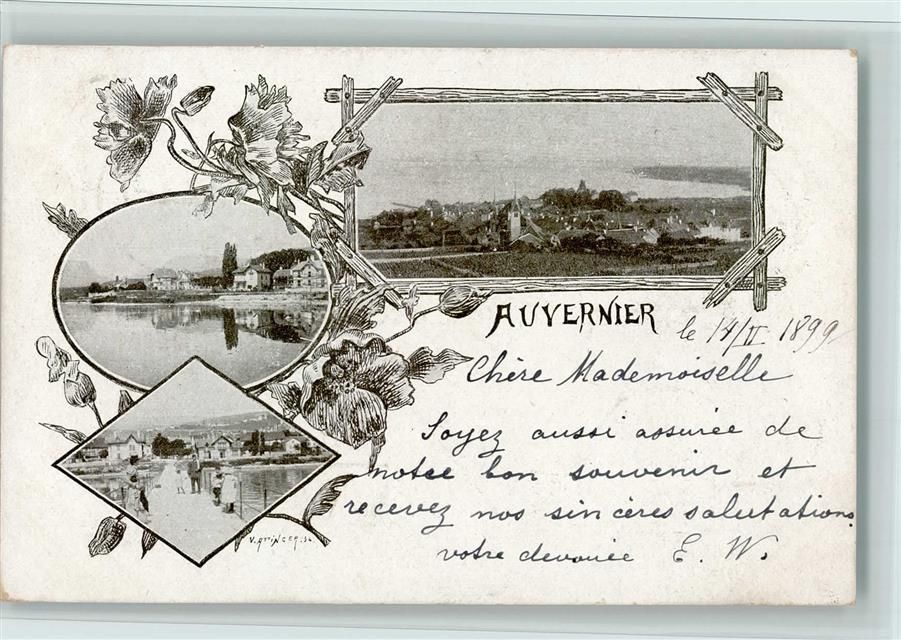 AUVERNIER
le 14/II 1899
Chère Mademoiselle
Soyez aussi assurée de
notre bon souvenir et
recevez nos sincères salutations.
votre dévouée E. W.
V. ATTINGER. sc